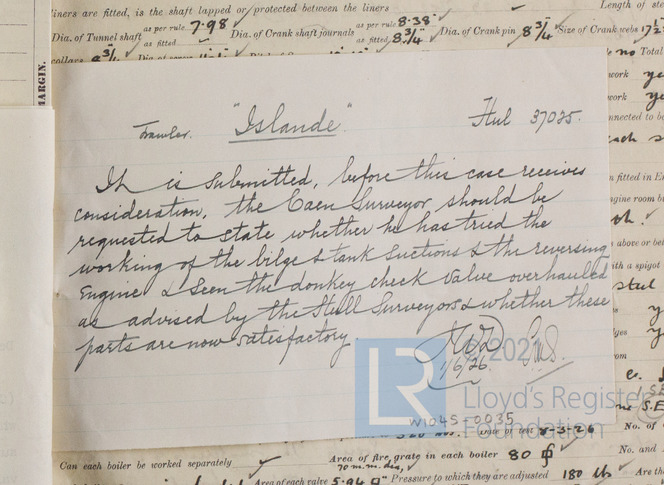 liners are fitted, is the shaft lapped or protected between the liners
Length of ste
Dia. of Tunnel shaft as per rule 7.98 as fitted Dia. of Crank shaft journals as per rule 8.38 as fitted 8 3/4" Dia. of Crank pin 8 3/4 Size of Crank webs 17 1/2
collars
no Total
MARGIN.
work
work
nnected to be
n fitted in En
ngine room b
above or bet
with a spigot
Trawler. "Islande". Hul 37025.
It is submitted, before this case receives
consideration, the Caen Surveyor should be
requested to state whether he has tried the
working of the bilge & tank suctions & the reversing
Engine & seen the donkey check valve overhauled
as advised by the Hull Surveyors & whether these
parts are now satisfactory.
1/6/26
LR
© 2021
Lloyd's Register
Foundation
W1045-0035
Date of test 8-3-26
No. of
Can each boiler be worked separately
Area of fire grate in each boiler 80
No. and
70 m.m. dia,
Area of each valve 5.94 Pressure to which they are adjusted 180 lb
Are th